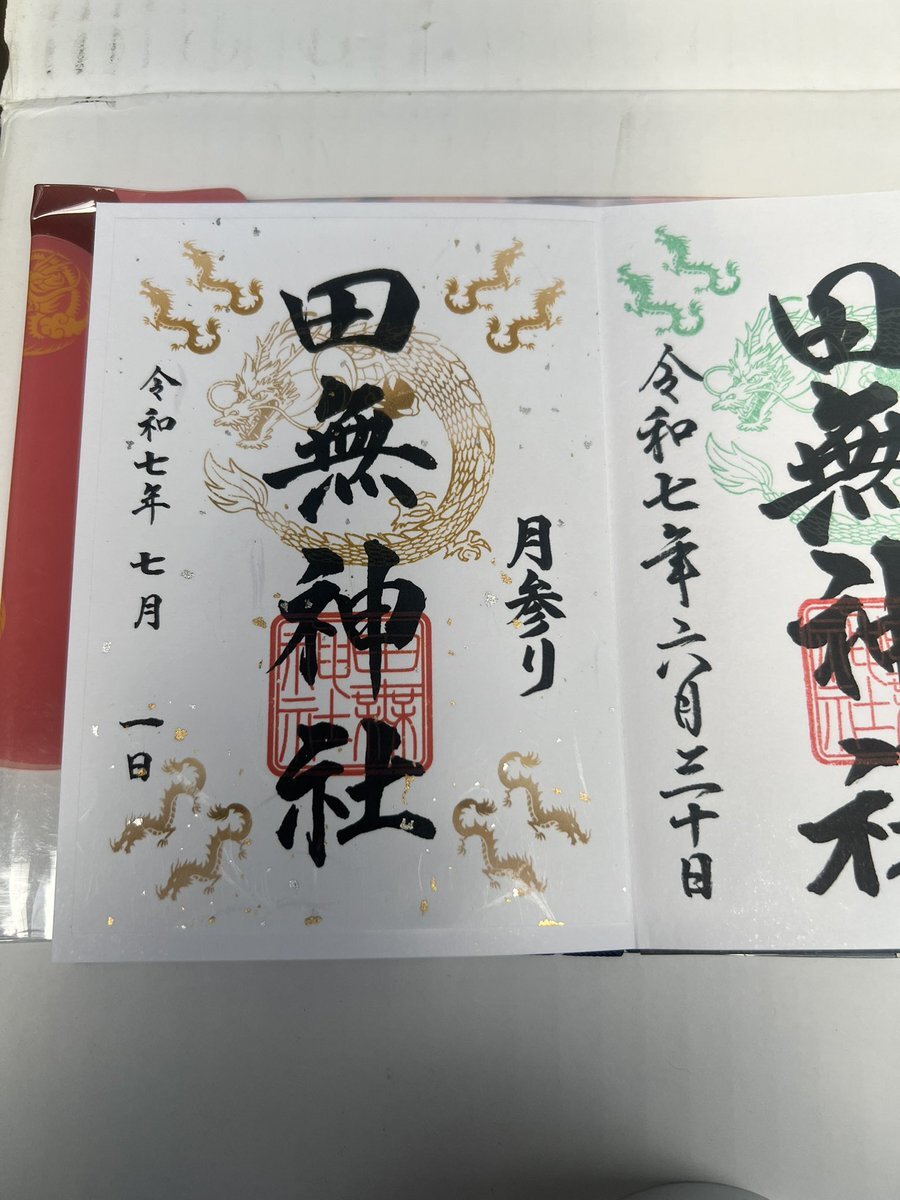 月参り
田無神社
田無神社
令和七年 七月 一日
田無神社
令和七年六月三十日